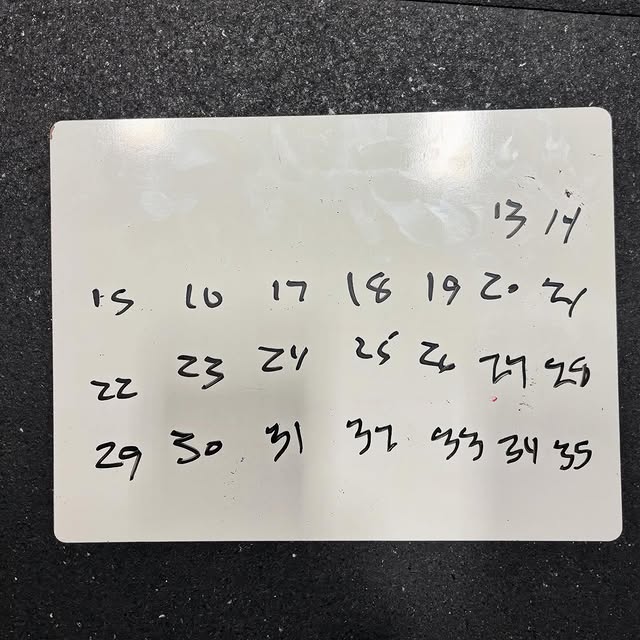 13 14
15 16 17 18 19 20 21
22 23 24 25 26 27 28
29 30 31 32 33 34 35